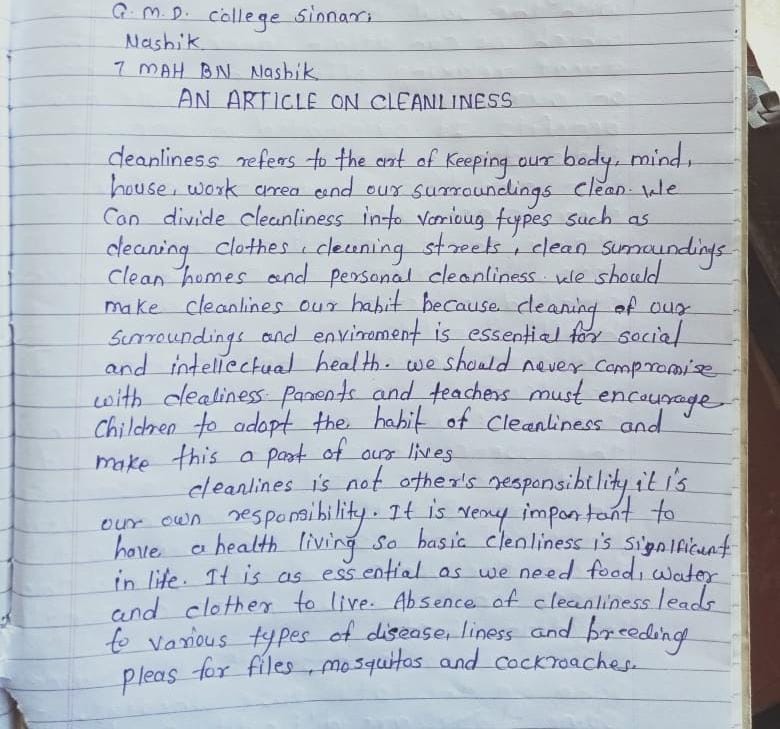 G. M. D. college Sinnar,
Nashik
7 MAH BN Nashik
AN ARTICLE ON CLEANLINESS
cleanliness refers to the art of Keeping our body, mind,
house, work area and our surroundings clean. We
Can divide cleanliness into various types such as
cleaning clothes, cleaning streets, clean surroundings
Clean homes and personal cleanliness. We should
make cleanlines our habit because cleaning of our
surroundings and enviroment is essential for social
and intellectual health. we should never compromise
with clealiness. Parents and teachers must encourage
Children to adopt the habit of Cleanliness and
make this a part of our lives
cleanlines is not other's responsibility, it is
our own responsibility. It is very important to
have a health living so basic clenliness is significant
in life. It is as essential as we need food, water
and clother to live. Absence of cleanliness leads
to various types of disease, liness and breeding
pleas for files, mosquitos and cockroaches.